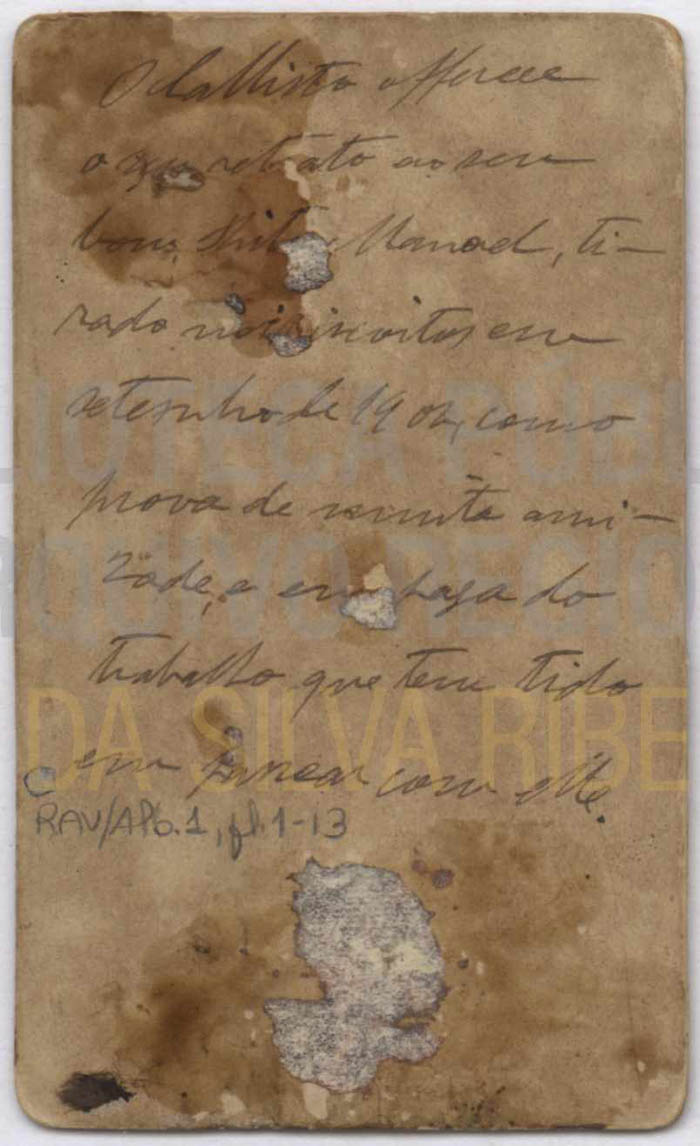 O Callisto offerece
o seu retrato ao seu
bom Manoel, ti-
rado em
setembro de 1902, como
prova de muita ami-
zade, e em paga do
trabalho que tem tido
em com elle.
RAV/Alb.1, fl.1-13
BIBLIOTECA PÚBLI
ARQUIVO REGIO
DA SILVA RIBE